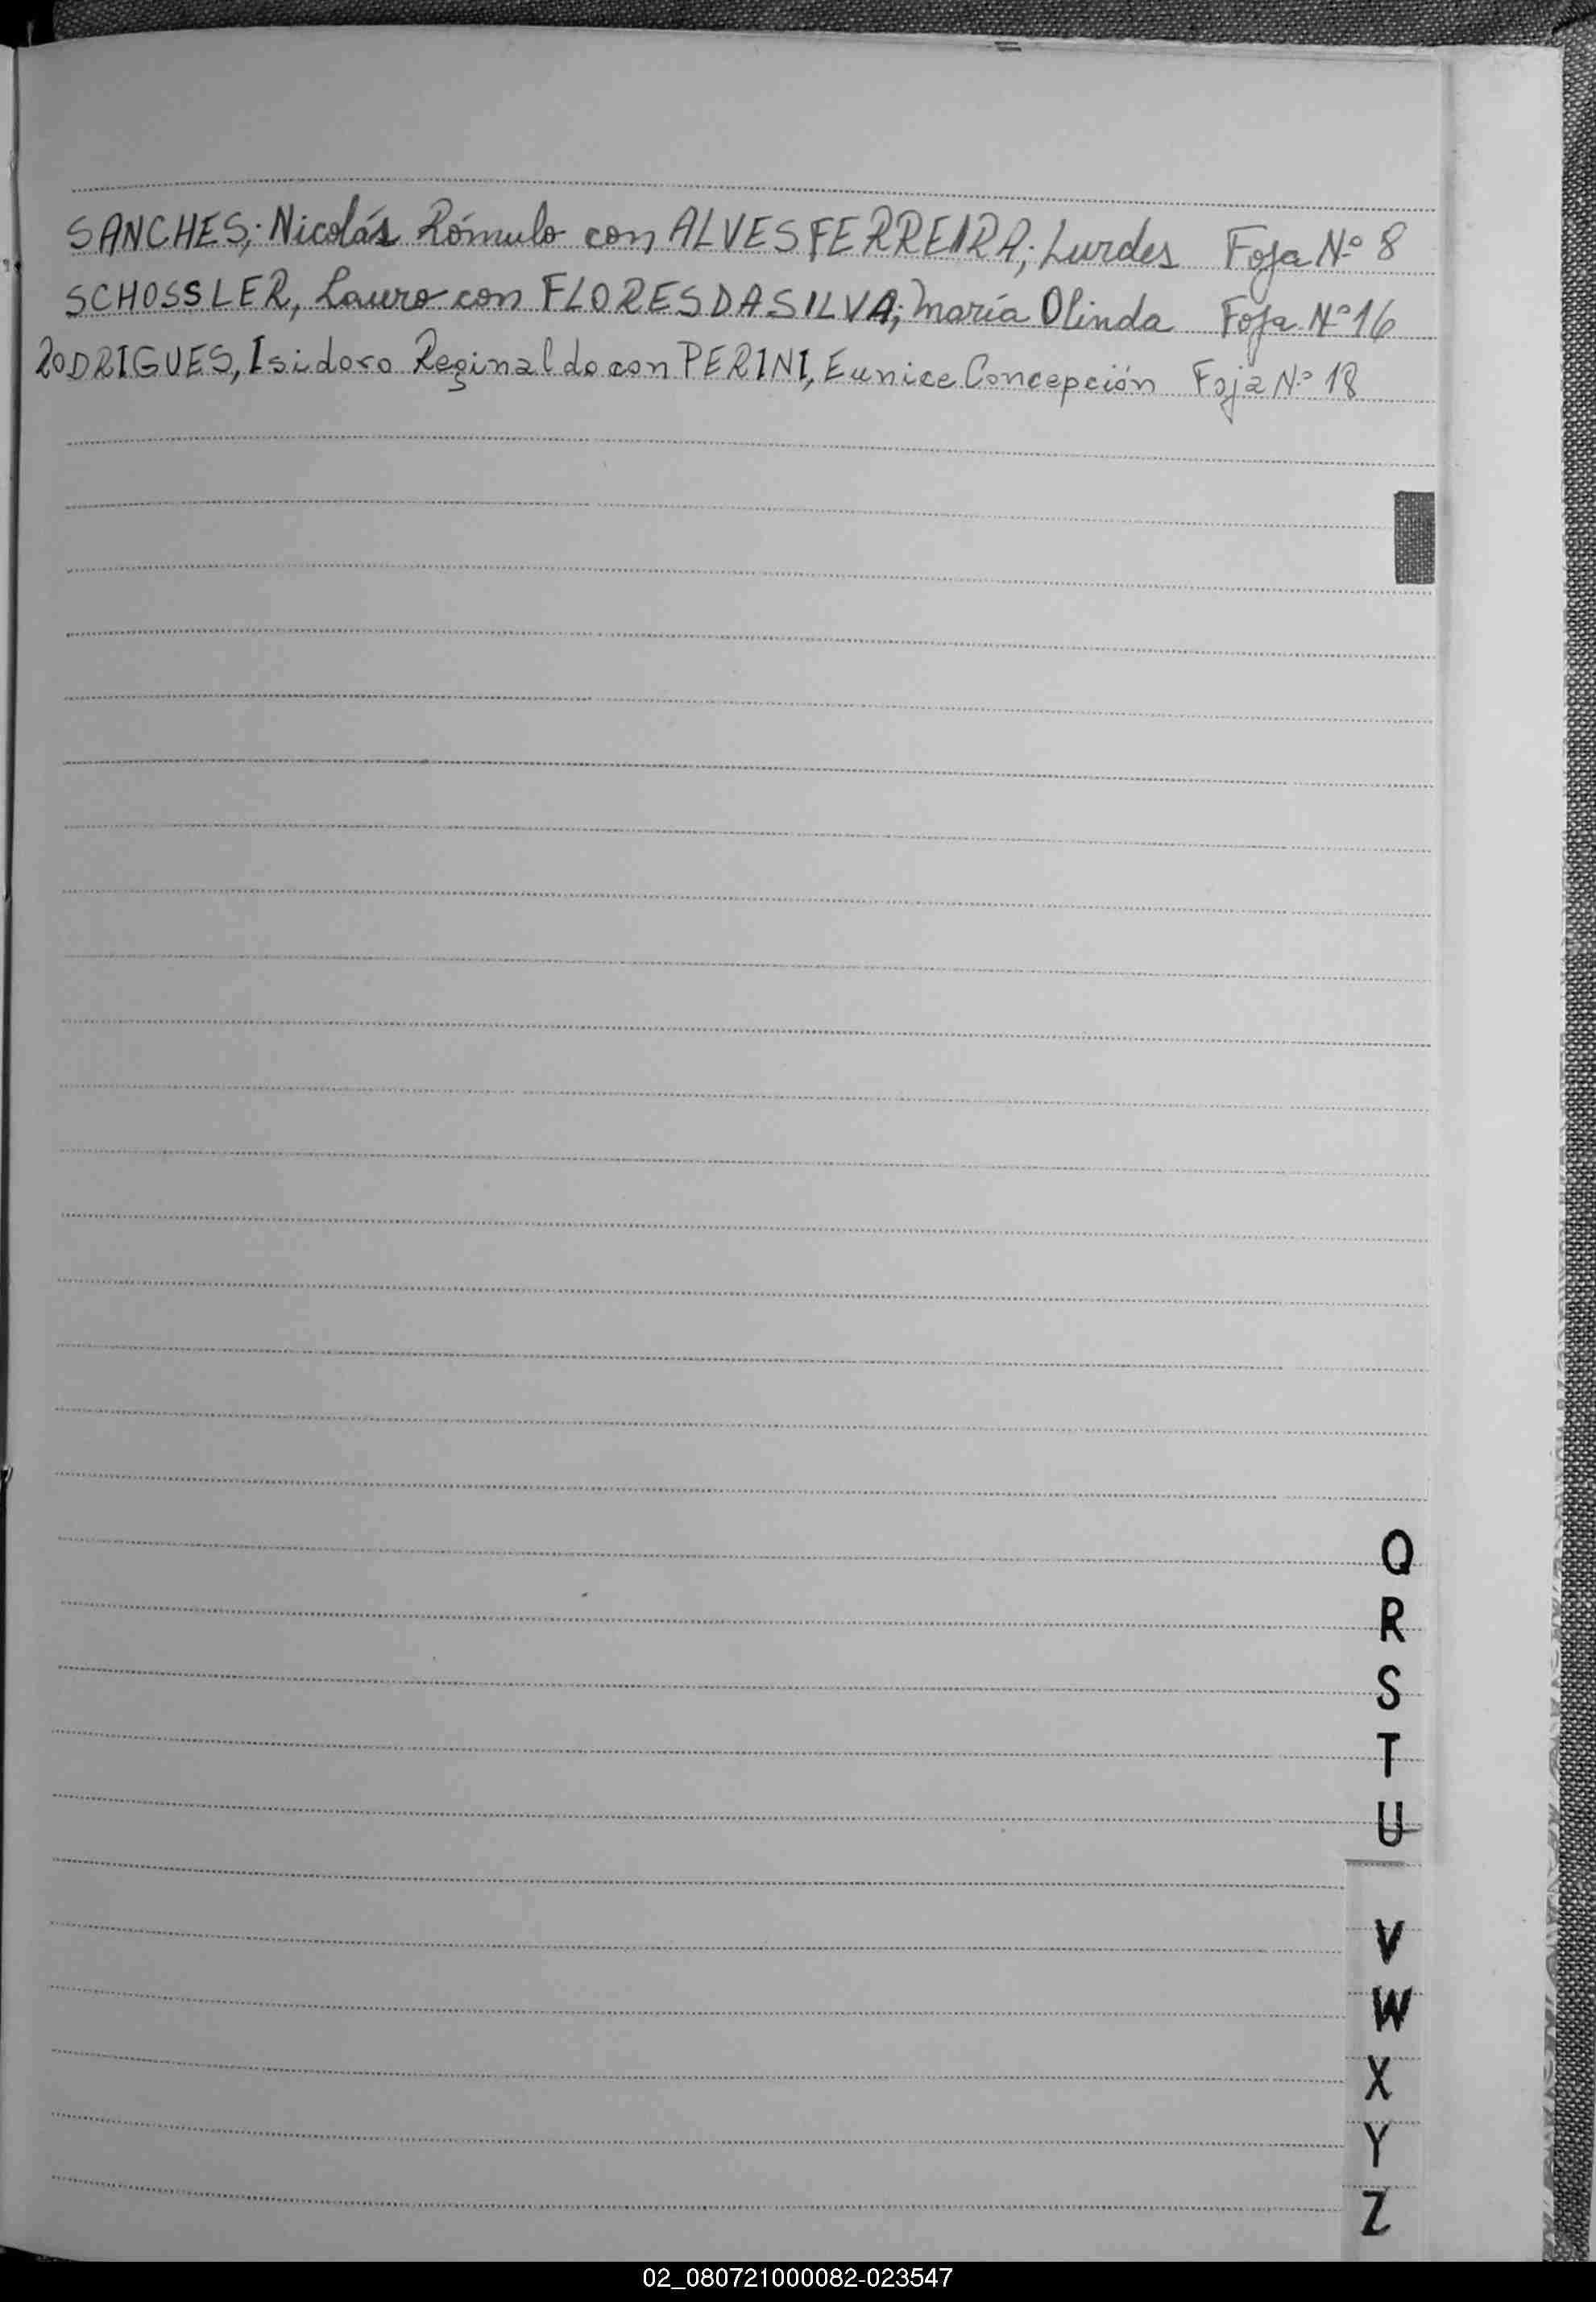 SANCHES; Nicolás Rómulo con ALVES FERREIRA; Lurdes Foja Nº 8
SCHOSSLER, Lauro con FLORES DA SILVA; María Olinda Foja Nº 16
RODRIGUES, Isidoro Reginaldo con PERINI, Eunice Concepción Foja Nº 18
Q
R
S
T
U
V
W
X
Y
Z
02_080721000082-023547